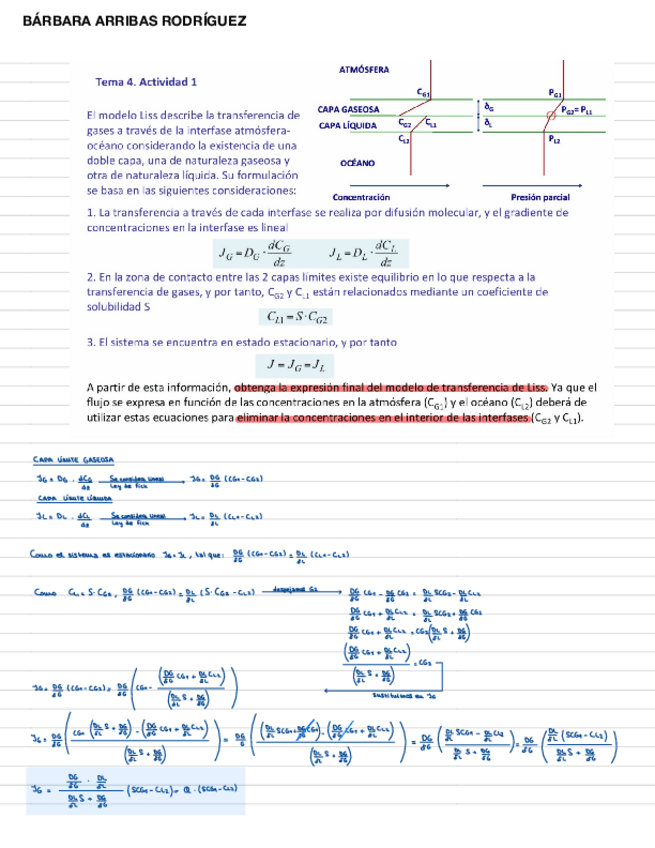 BÁRBARA ARRIBAS RODRÍGUEZ
Tema 4. Actividad 1
El modelo Liss describe la transferencia de
gases a través de la interfase atmósfera-
océano considerando la existencia de una
doble capa, una de naturaleza gaseosa y
otra de naturaleza líquida. Su formulación
se basa en las siguientes consideraciones:
ATMÓSFERA
C_G1
P_G1
CAPA GASEOSA
∂_G
P_G2= P_L1
CAPA LÍQUIDA
C_G2
C_L1
∂_L
C_L2
P_L2
OCÉANO
Concentración
Presión parcial
1. La transferencia a través de cada interfase se realiza por difusión molecular, y el gradiente de
concentraciones en la interfase es lineal
J_G = D_G · dC_G/dz J_L = D_L · dC_L/dz
2. En la zona de contacto entre las 2 capas límites existe equilibrio en lo que respecta a la
transferencia de gases, y por tanto, C_G2 y C_L1 están relacionados mediante un coeficiente de
solubilidad S
C_L1 = S · C_G2
3. El sistema se encuentra en estado estacionario, y por tanto
J = J_G = J_L
A partir de esta información, obtenga la expresión final del modelo de transferencia de Liss. Ya que el
flujo se expresa en función de las concentraciones en la atmósfera (C_G1) y el océano (C_L2) deberá de
utilizar estas ecuaciones para eliminar la concentraciones en el interior de las interfases (C_G2 y C_L1).
CAPA LÍMITE GASEOSA
JG = DG · dCG/dz Se considera lineal Ley de Fick JG = DG/∂G (CG1 - CG2)
CAPA LÍMITE LÍQUIDA
JL = DL · dCL/dz Se considera lineal Ley de Fick JL = DL/∂L (CL1 - CL2)
Como el sistema es estacionario JG = JL, tal que: DG/∂G (CG1 - CG2) = DL/∂L (CL1 - CL2)
Como CL1 = S · CG2, DG/∂G (CG1 - CG2) = DL/∂L (S · CG2 - CL2) despejamos G2 DG/∂G CG1 - DG/∂G CG2 = DL/∂L SCG2 - DL/∂L CL2
DG/∂G CG1 + DL/∂L CL2 = DL/∂L SCG2 + DG/∂G CG2
DG/∂G CG1 + DL/∂L CL2 = CG2 (DL/∂L S + DG/∂G)
(DG/∂G CG1 + DL/∂L CL2) / (DL/∂L S + DG/∂G) = CG2
Sustituimos en JG
JG = DG/∂G (CG1 - CG2) = DG/∂G (CG1 - (DG/∂G CG1 + DL/∂L CL2) / (DL/∂L S + DG/∂G))
JG = DG/∂G ((CG1 (DL/∂L S + DG/∂G) - (DG/∂G CG1 + DL/∂L CL2)) / (DL/∂L S + DG/∂G)) = DG/G (((DL/∂L SCG1 + DG/∂G CG1) - (DG/∂G CG1 + DL/∂L CL2)) / (DL/∂L S + DG/∂G)) = DG/∂G ((DL/∂L SCG1 - DL/∂L CL2) / (DL/∂L S + DG/∂G)) = DG/∂G ((DL/∂L (SCG1 - CL2)) / (DL/∂L S + DG/∂G))
JG = (DG/∂G · DL/∂L) / (DL/∂L S + DG/∂G) (SCG1 - CL2) = Q · (SCG1 - CL2)